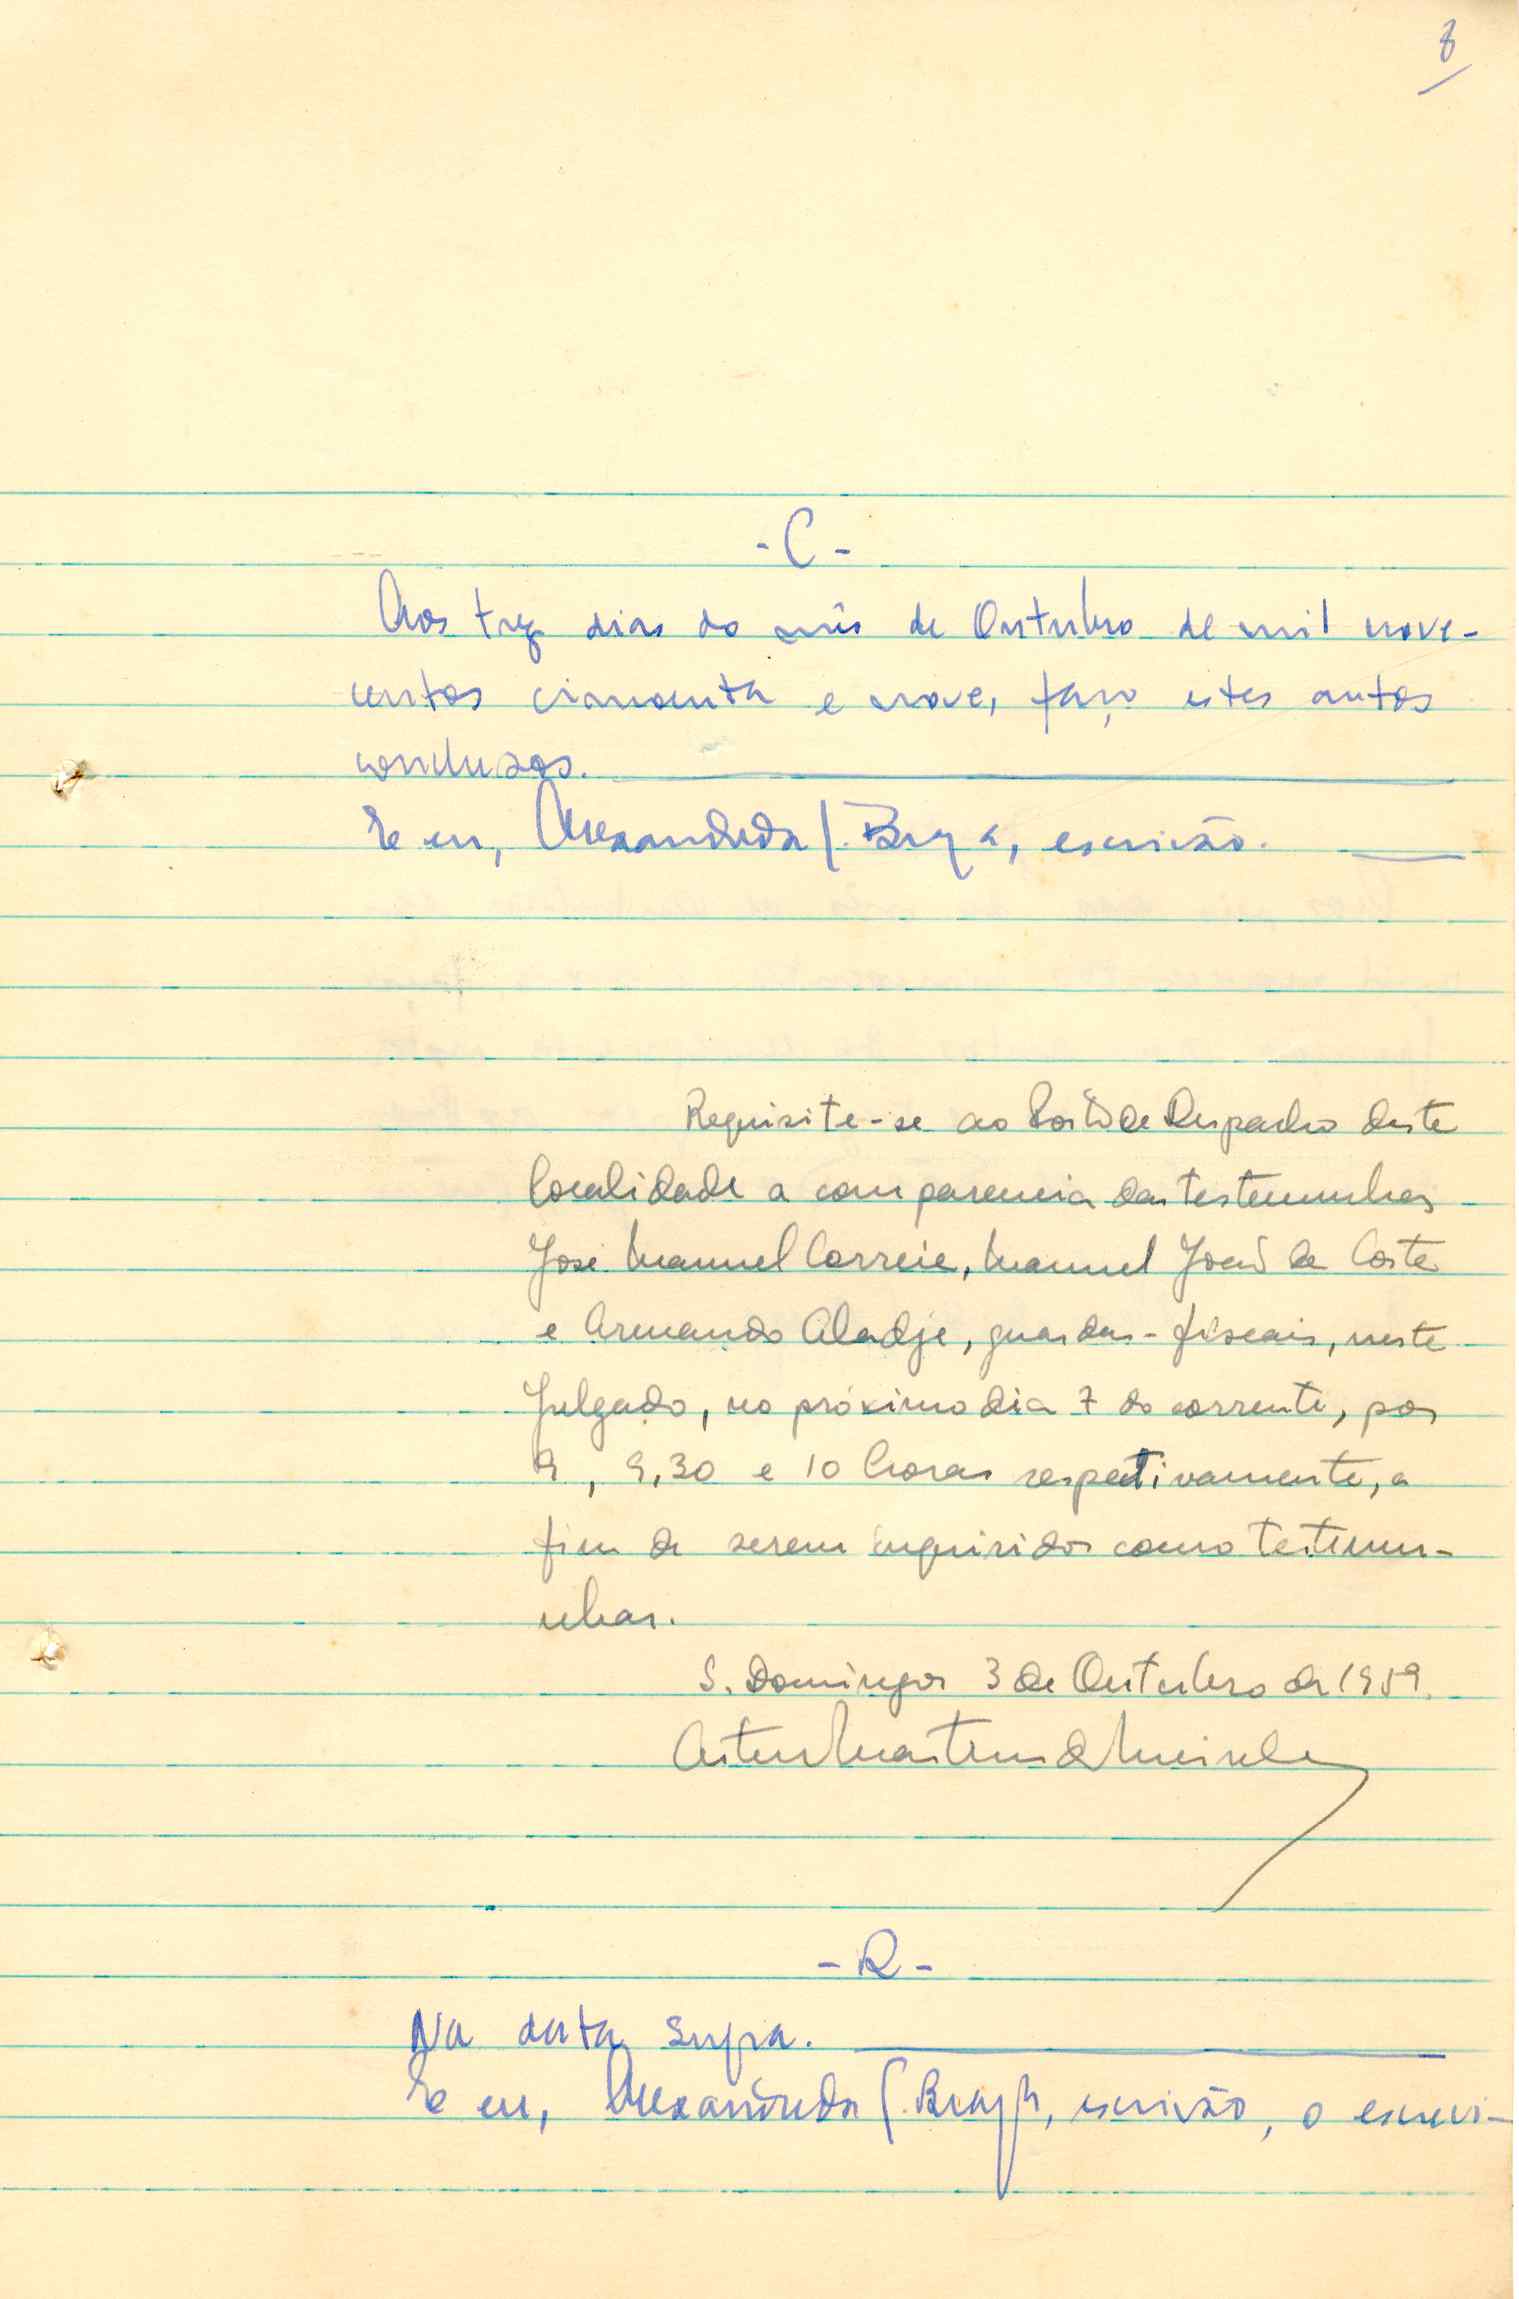 8
- C -
Aos trez dias do mês de Outubro de mil nove-
centos cincoenta e nove, faço estes autos
conclusos.
E eu, Braga, escrivão.
Requisite-se ao Posto de Despacho desta
localidade a comparencia das testemunhas
José Manuel Correia, Manuel João da Costa
e Armando Aladje, guardas-fiscais, neste
Julgado, no próximo dia 7 do corrente, pas
9, 9,30 e 10 horas respectivamente, a
fim de serem inquiridos como testemu-
nhas.
S. Domingos 3 de Outubro de 1959.
- R -
Na data supra.
E eu, escrivão, o escrevi-